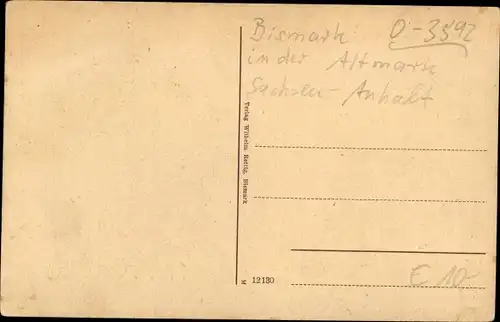 Bismark O-3592
in der Altmark
Sachsen-Anhalt
Verlag Wilhelm Rettig, Bismark
M 12130
E 10-